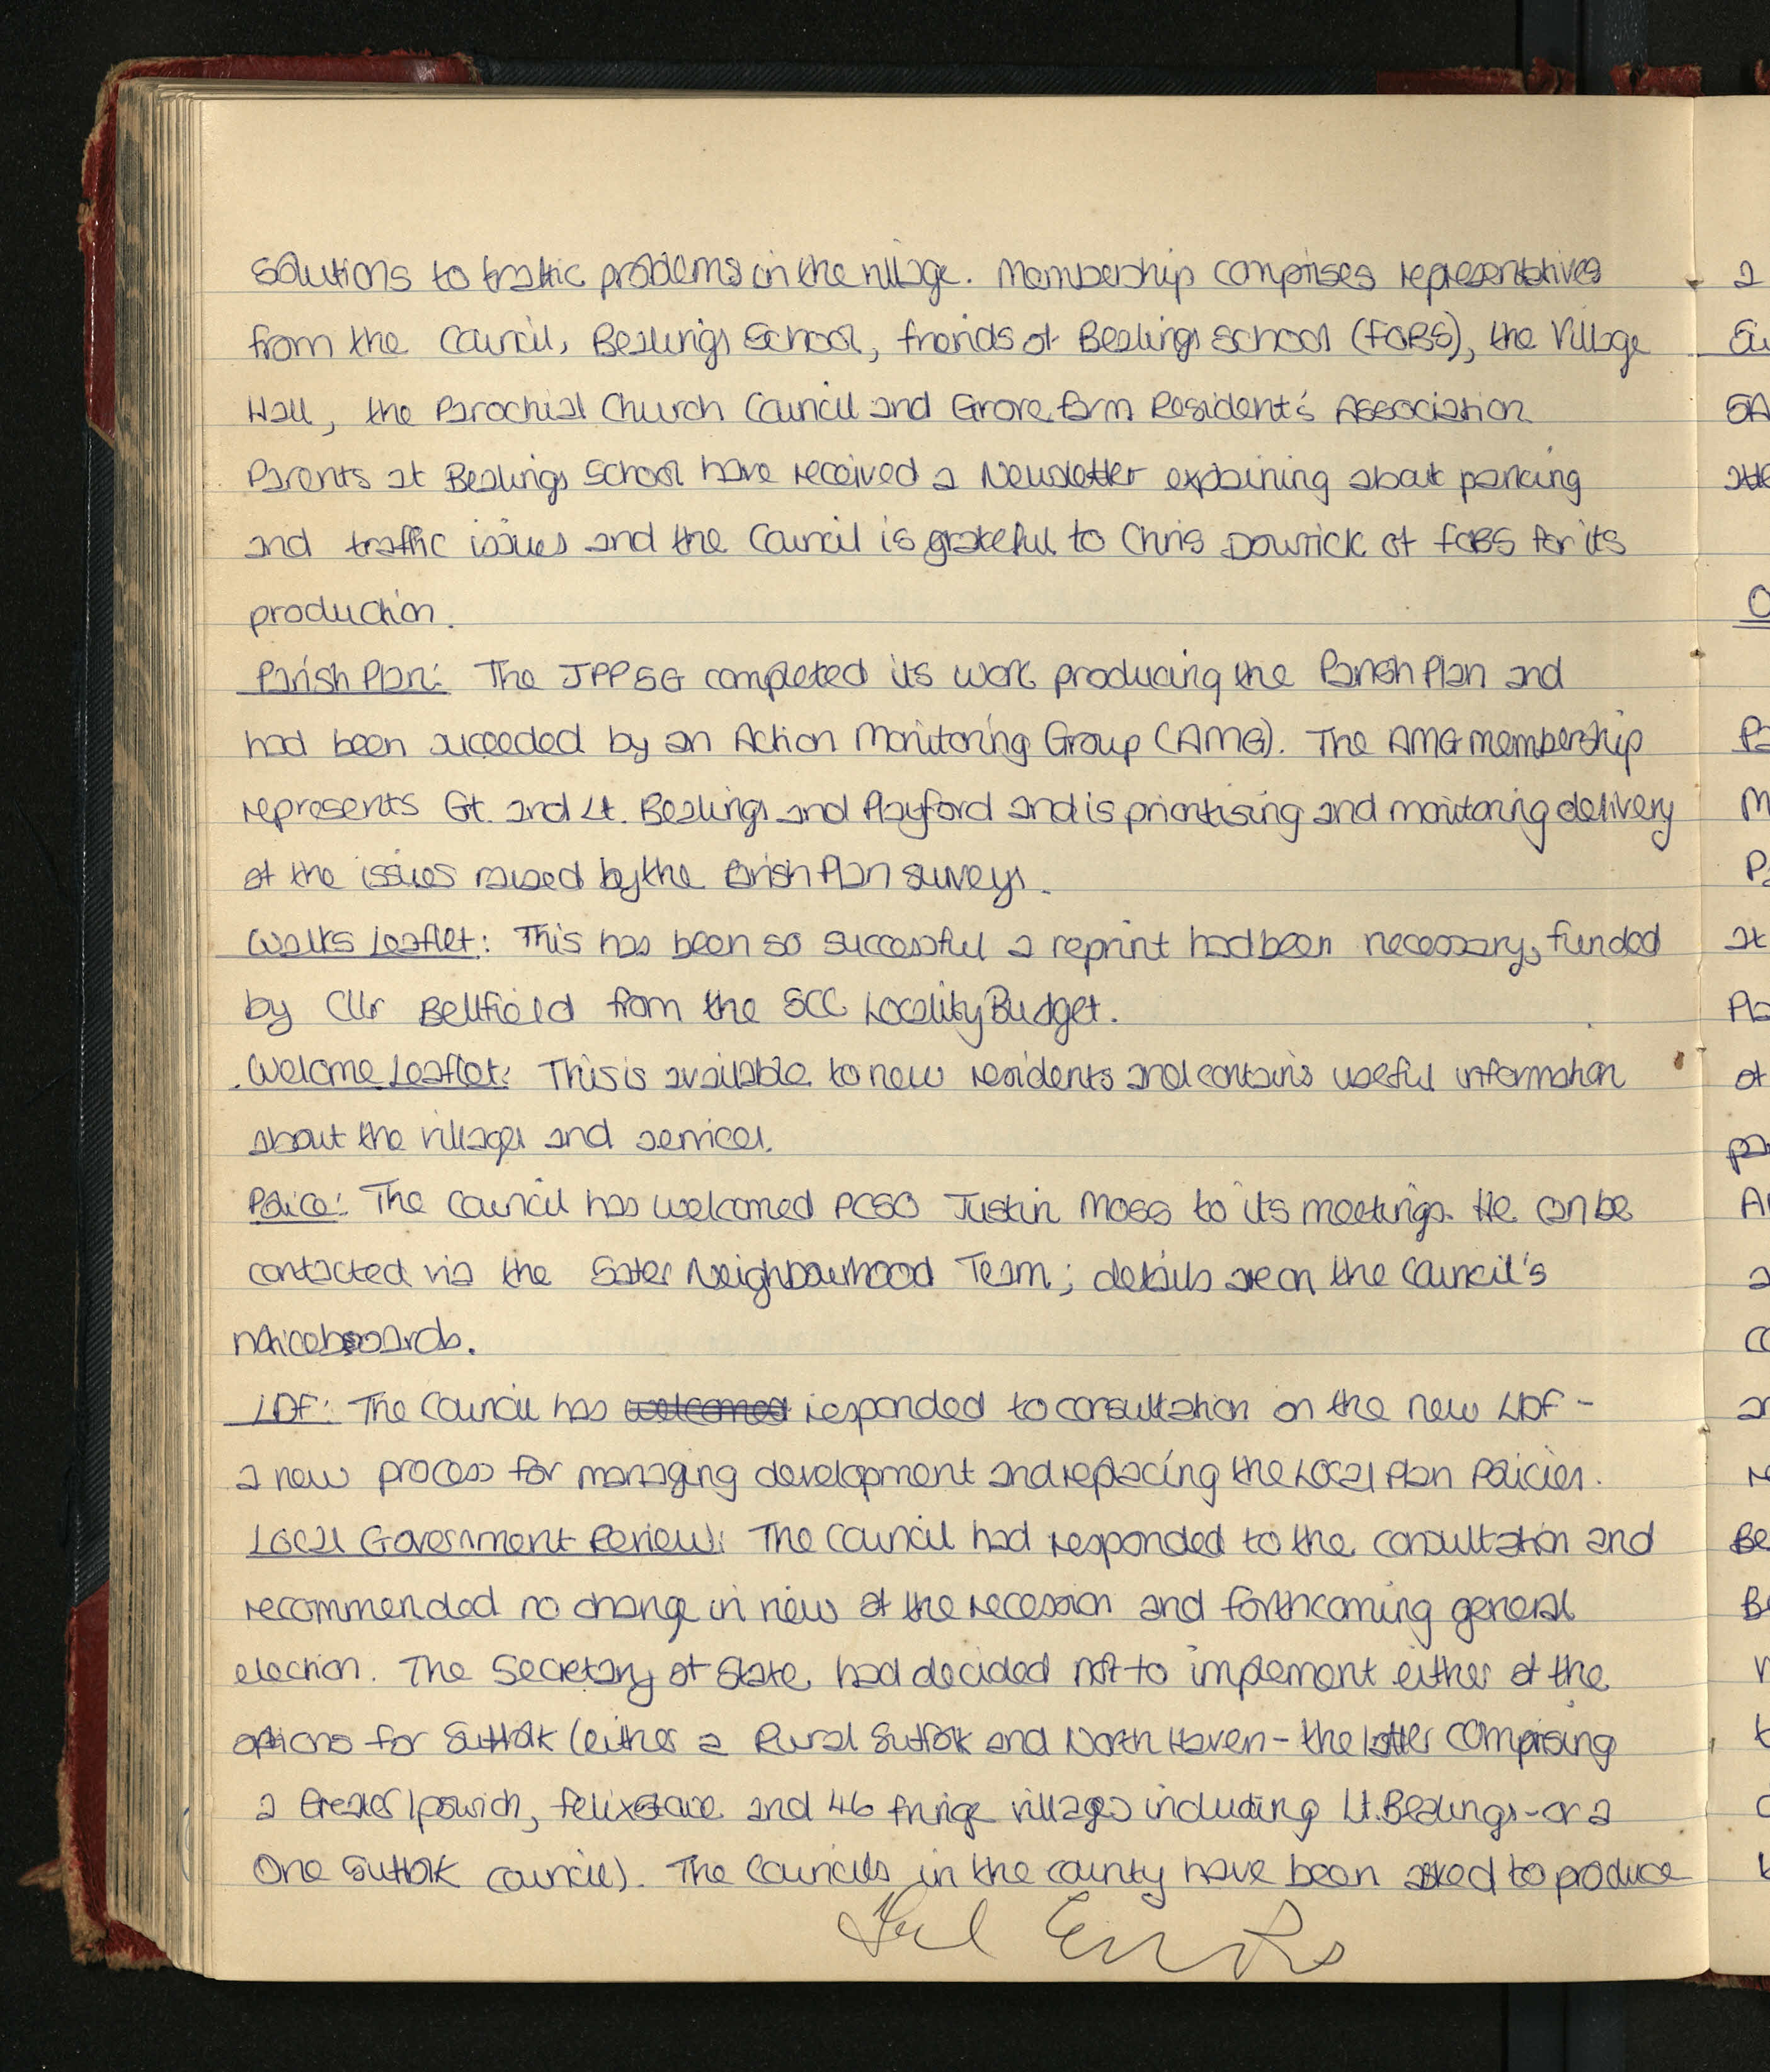 solutions to traffic problems in the village. Membership comprises representatives
from the Council, Bealings School, friends of Bealings School (FOBS), the Village
Hall, the Parochial Church Council and Grove Farm Resident's Association
Parents at Bealings School have received a Newsletter explaining about parking
and traffic issues and the Council is grateful to Chris Dowrick of FOBS for its
production.
Parish Plan: The JPPSG completed its work producing the Parish Plan and
had been succeeded by an Action Monitoring Group (AMG). The AMG membership
represents Gt. and Lt. Bealings and Playford and is prioritising and monitoring delivery
of the issues raised by the Parish Plan surveys.
Walks Leaflet: This has been so successful a reprint had been necessary, funded
by Cllr Bellfield from the SCC Locality Budget.
Welcome Leaflet: This is available to new residents and contains useful information
about the villages and services.
Police: The Council has welcomed PCSO Justin Moss to its meetings. He can be
contacted via the Safer Neighbourhood Team; details are on the Council's
noticeboards.
LDF: The Council has welcomed responded to consultation on the new LDF -
a new process for managing development and replacing the Local Plan Policies.
Local Government Review: The Council had responded to the consultation and
recommended no change in view of the recession and forthcoming general
election. The Secretary of State had decided not to implement either of the
options for Suffolk (either a Rural Suffolk and North Haven - the latter comprising
a Greater Ipswich, Felixstowe and 46 fringe villages including Lt. Bealings - or a
One Suffolk council). The Councils in the county have been asked to produce